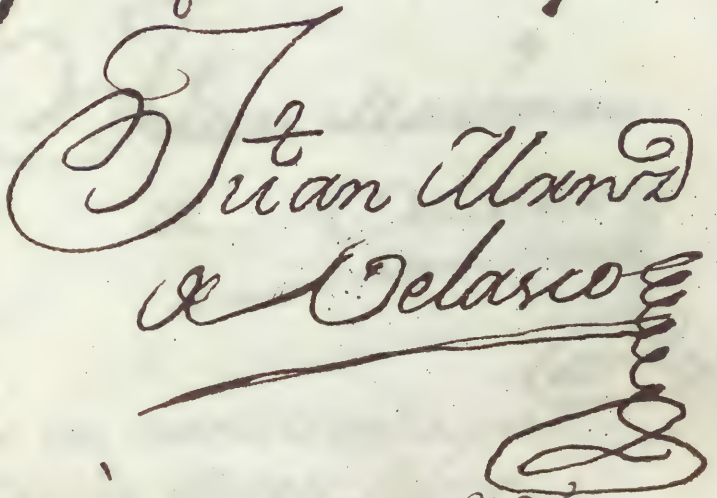 Juan Mrnz
de Velasco